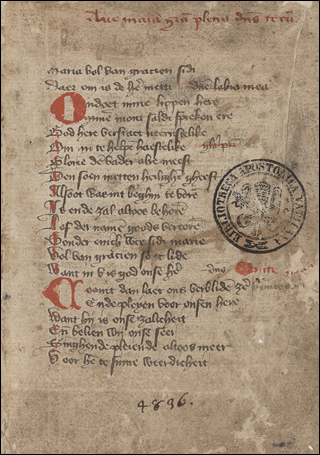 Aue maria gra plena dns tecu
Maria vol van gracien sidi
Daer om is de he metti dne labia mea
Ondoet mine lippen here
Ende mine mont sal di spreken ere
God here verstaet neerstelike
Om mi te helpe haestelike
Glorie de vader alre meest
Den soen metten heilighe gheest
Alsoet was int beghin te vore
Is ende sal altoes behore
Lof des name gods vercore
Sonder einch wee sidi marie
Vol van gracien so it lide
Want in v is god onse
Coemt dan laet ons verblide
Ende pleyen voor onsen here
Want hi is onse salicheit
En belien wij onse seer
Singhende pleiende altoos meer
Voor he te sinne weerdicheit
BIBLIOTHECA APOSTOLICA VATICANA
4836.